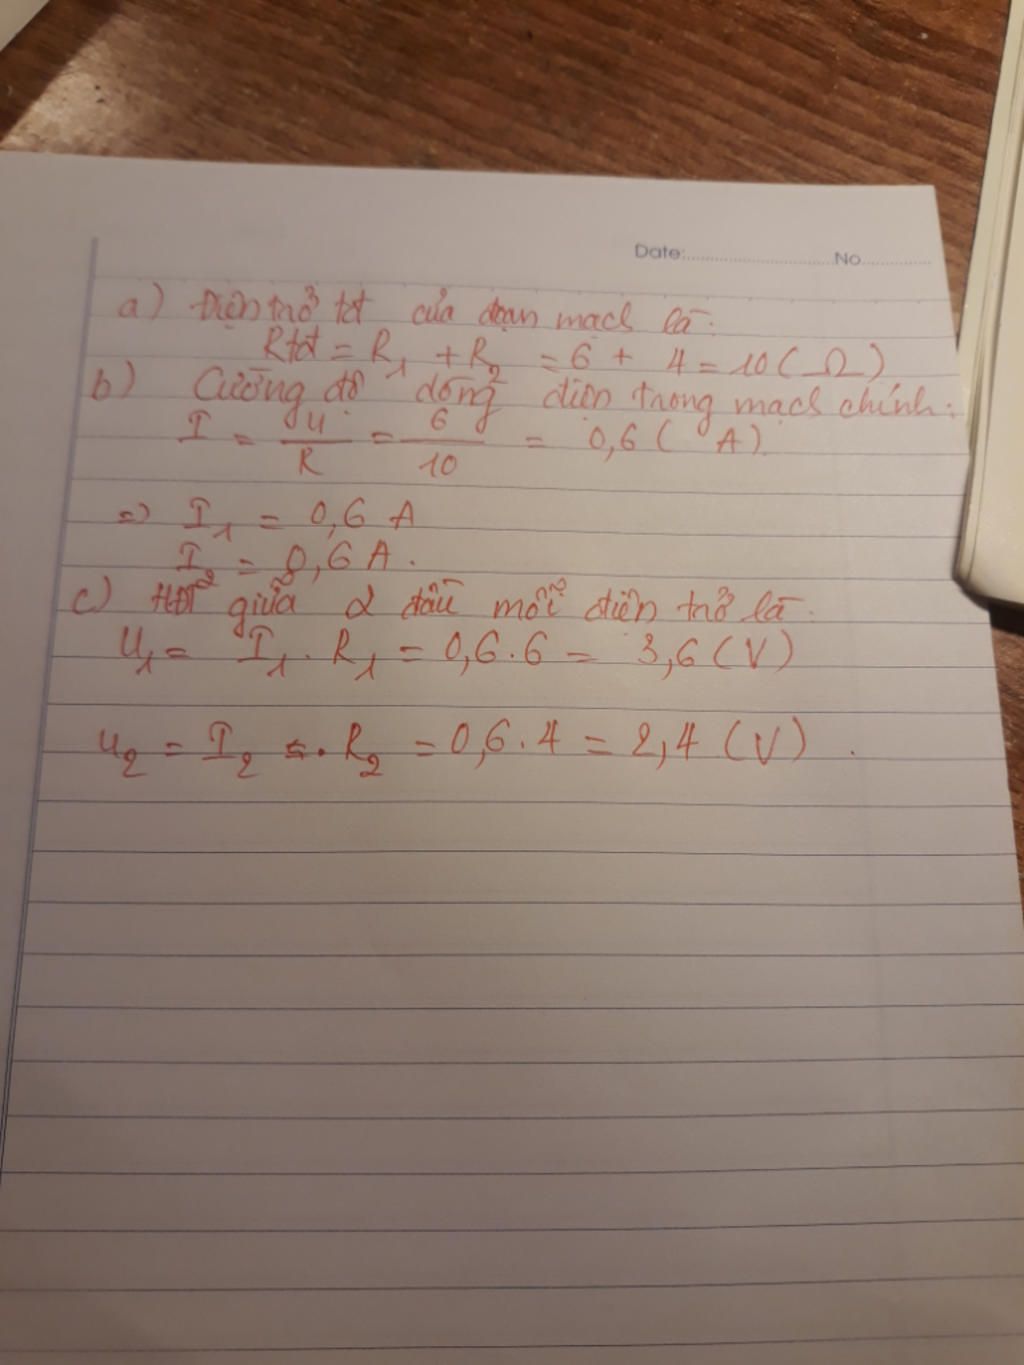 Date: No
a) Điện trở tđ của đoạn mạch là:
Rtđ = R1 + R2 = 6 + 4 = 10 (Ω)
b) Cường độ dòng điện trong mạch chính:
I = U/R = 6/10 = 0,6 (A)
=> I1 = 0,6 A
I2 = 0,6 A.
c) HĐT giữa 2 đầu mỗi điện trở là:
U1 = I1 . R1 = 0,6 . 6 = 3,6 (V)
U2 = I2 . R2 = 0,6 . 4 = 2,4 (V) .